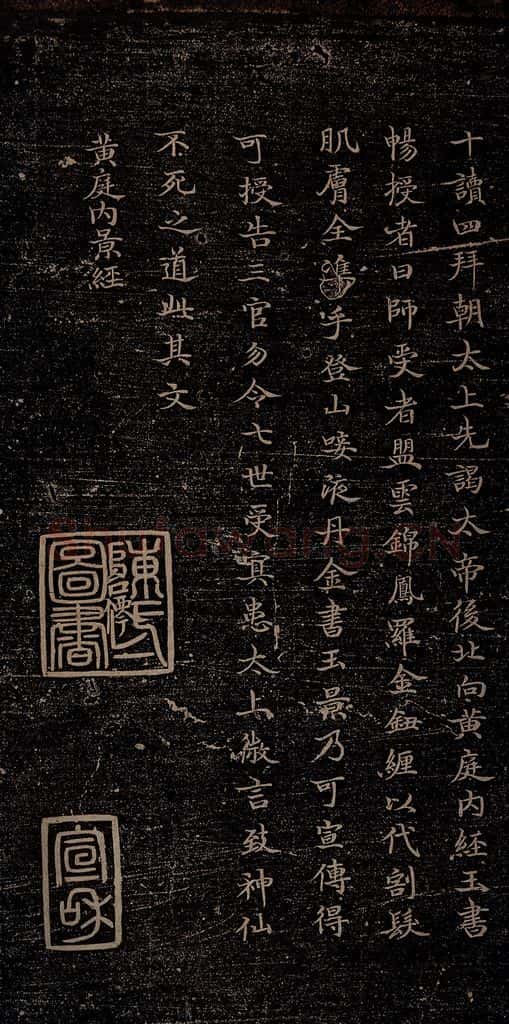 十讀四拜朝太上先謁太帝後北向黄庭内經玉書
暢授者曰師受者盟雲錦鳳羅金鈕纏以代割髮
肌膚全攜手登山歃液丹金書玉景乃可宣傳得
可授告三官勿令七世受冥患太上微言致神仙
不死之道此其文
黄庭内景經
陳氏
圖書
宣和